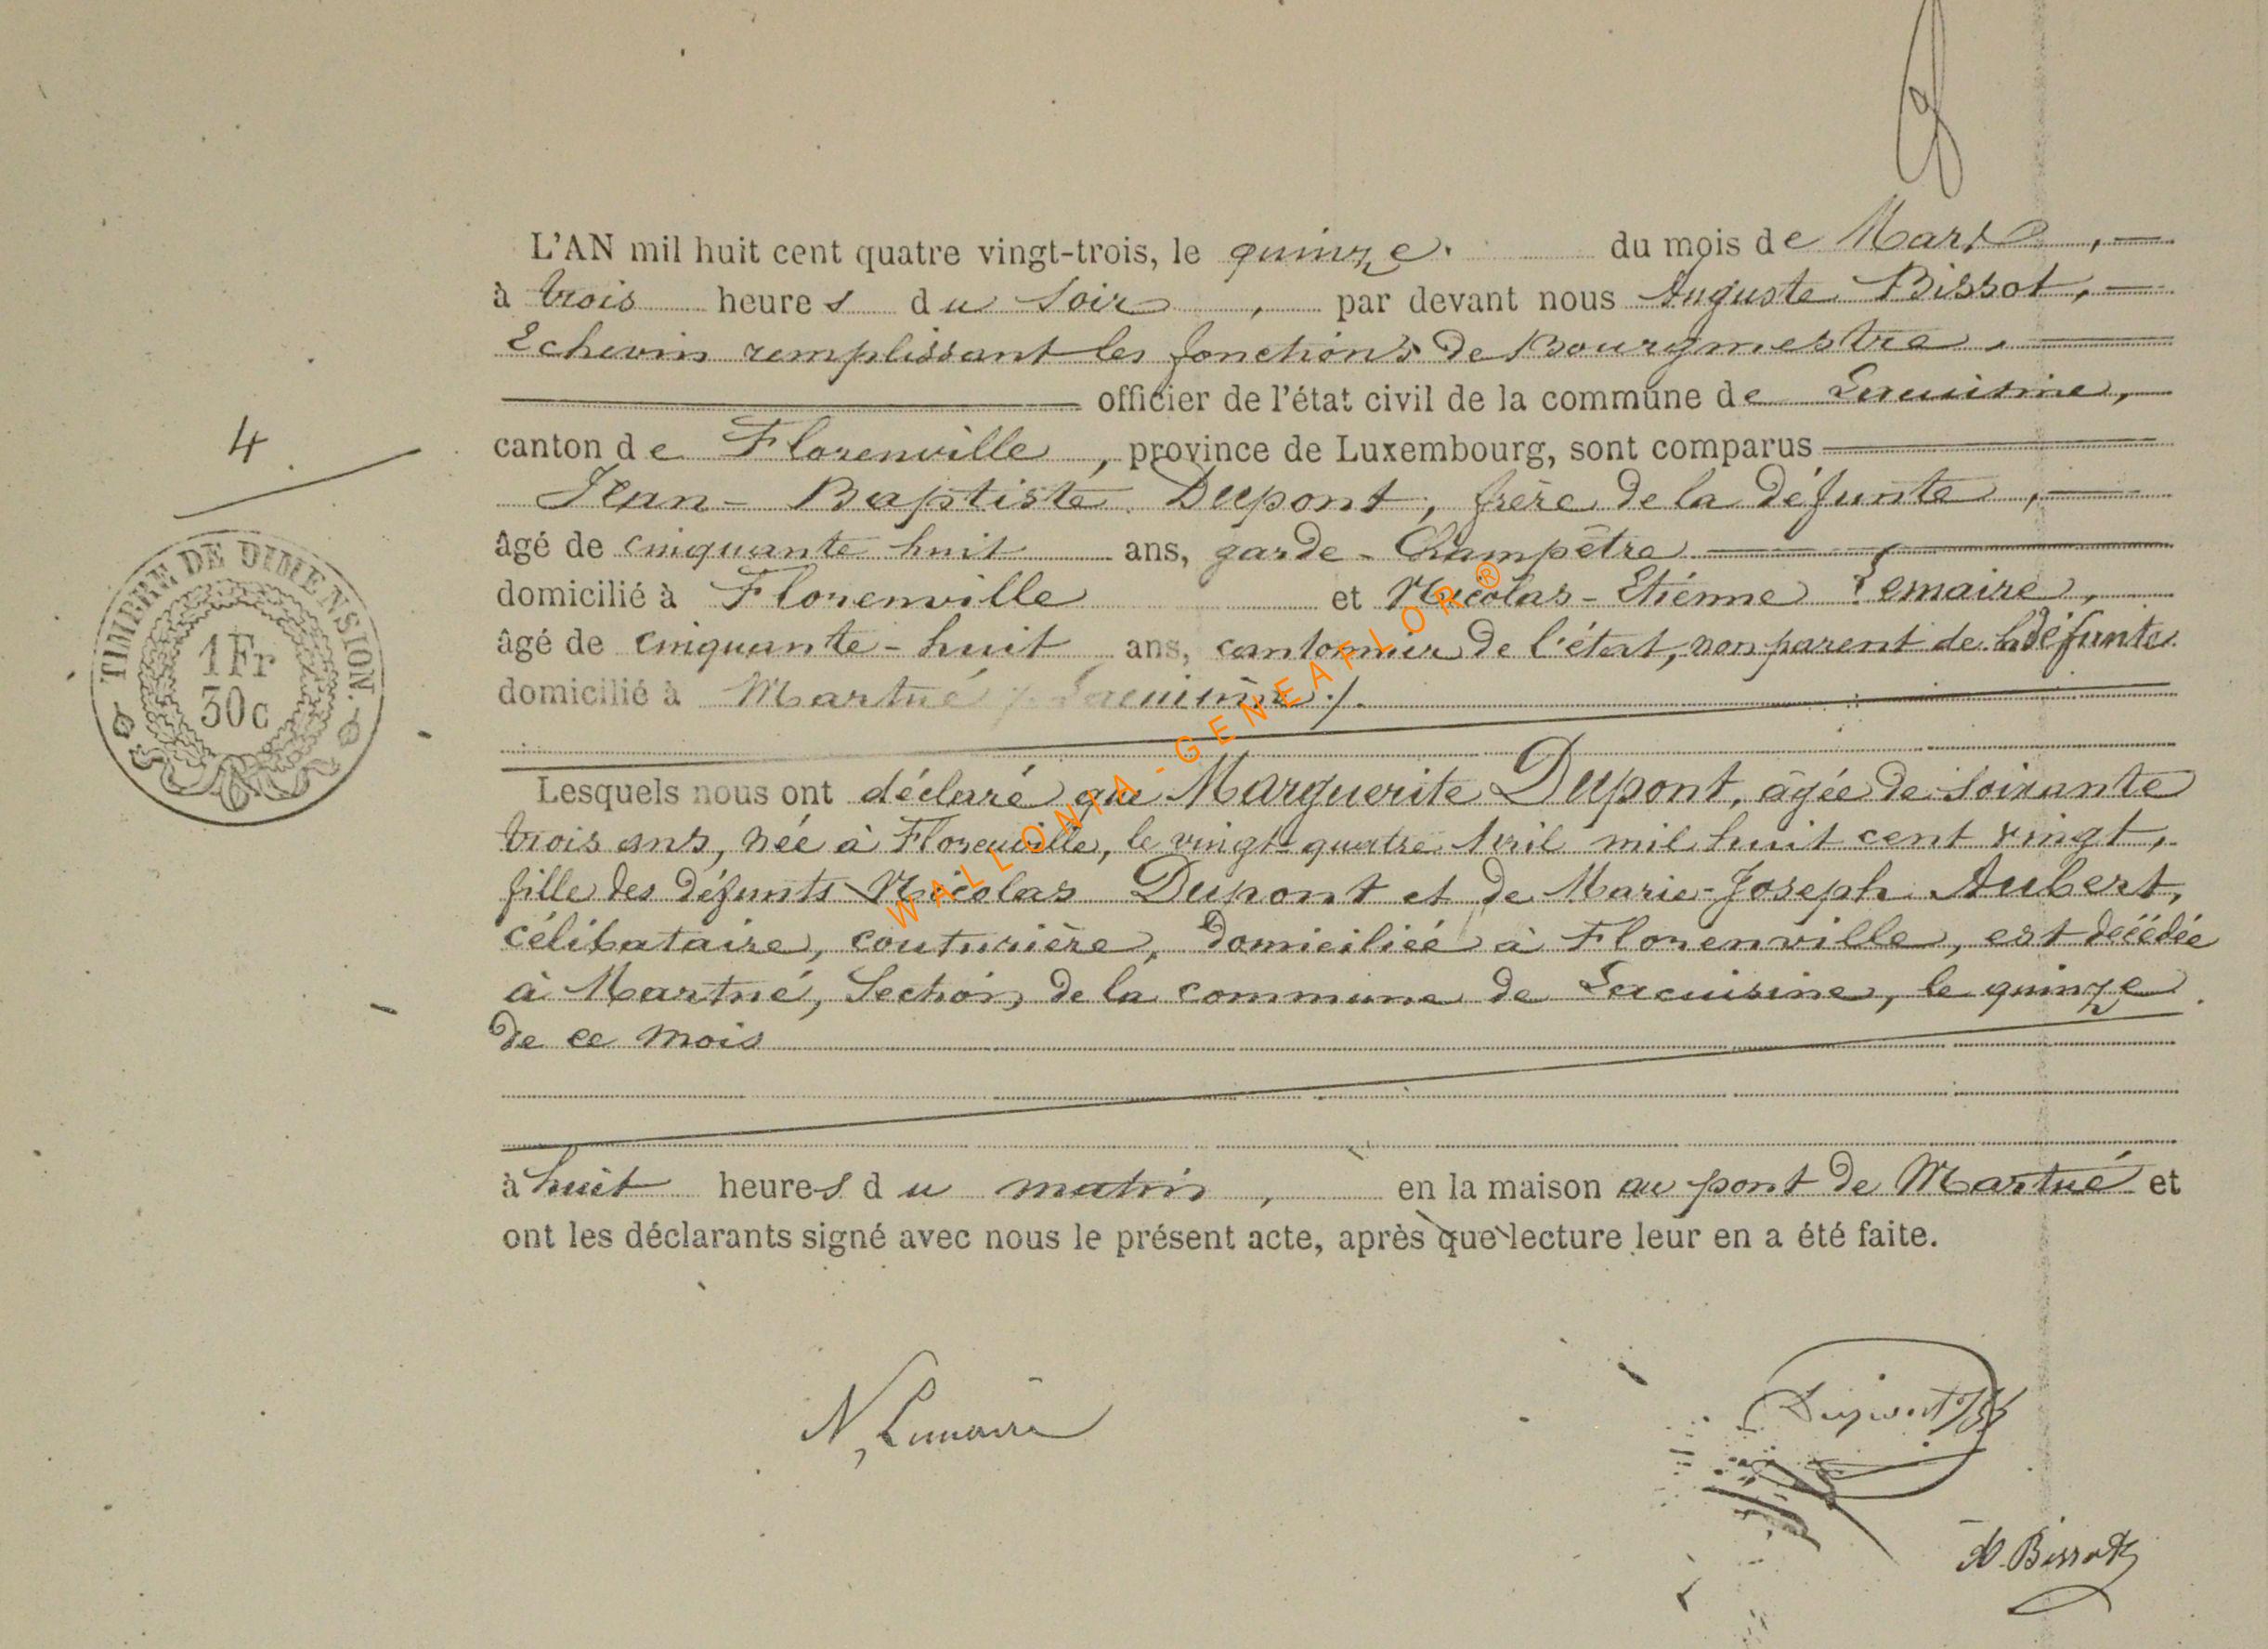 L'AN mil huit cent quatre vingt-trois, le quinze. du mois de Mars,
à trois heures du soir, par devant nous Auguste Bissot,
Echevin remplissant les fonctions de Bourgmestre.
officier de l'état civil de la commune de Lacuisine,
canton de Florenville, province de Luxembourg, sont comparus
4
Jean-Baptiste Dupont, frère de la défunte,
âgé de cinquante huit ans, garde-Champêtre
domicilié à Florenville et Nicolas-Etiénne Lemaire,
âgé de cinquante-huit ans, cantonnier de l'état, non parent de la défunte
domicilié à Martué /. Lacuisine ./.
TIMBRE DE DIMENSION.
1Fr
30c
Lesquels nous ont déclaré que Marguerite Dupont, agée de soixante
trois ans, née à Florenville, le vingt-quatre Avril mil huit cent vingt,
fille des défunts Nicolas Dupont et de Marie-Joseph Aubert,
célibataire, couturière, domiciliée à Florenville, est décédée
à Martué, Section de la commune de Lacuisine, le quinze
de ce mois
à huit heures du matin, en la maison au pont de Martué et
ont les déclarants signé avec nous le présent acte, après que lecture leur en a été faite.
N. Lemaire
Dupont JB
A. Bissot
WALLONIA-GENEAFLOR®